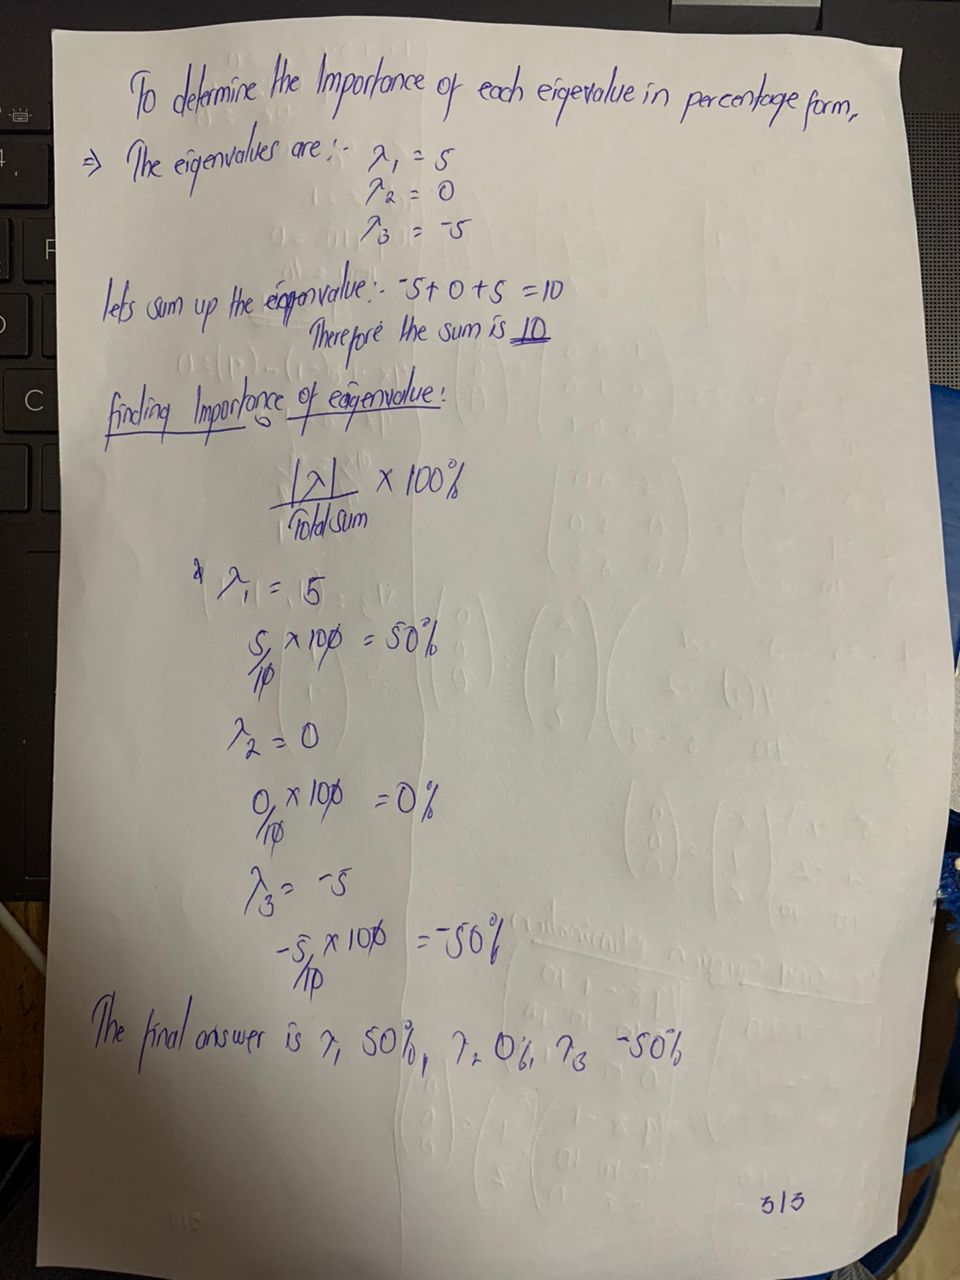 To determine the Importance of each eigevalue in percentage form,
⇒ The eigenvalues are :- λ₁ = 5
λ₂ = 0
λ₃ = -5
lets sum up the eigenvalue:- -5+ 0 + 5 = 10
Therefore the sum is 10
finding Importance of eagenvalue:
|λ| / Total sum × 100%
* λ₁ = 5
5/10 × 100 = 50%
λ₂ = 0
0/10 × 100 = 0%
λ₃ = -5
-5/10 × 100 = -50%
The final answer is λ₁ 50%, λ₂ 0%, λ₃ -50%
3/3
C